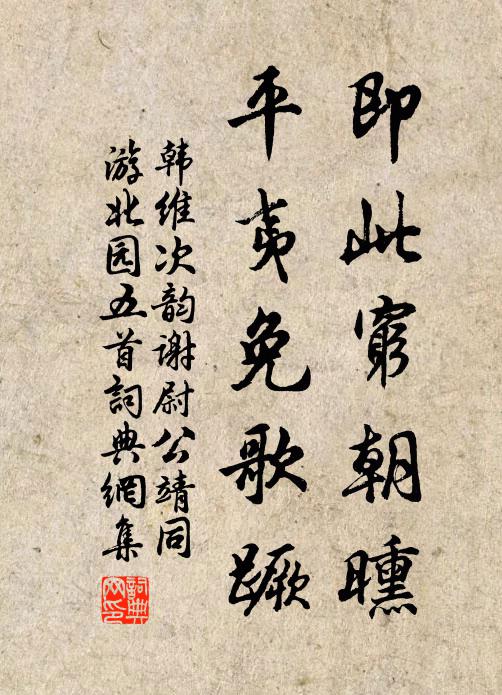 即此窮朝曛
平夷免歌蹶
韩維次韵谢尉公靖同
游北园五首詞典網集
詞典網印